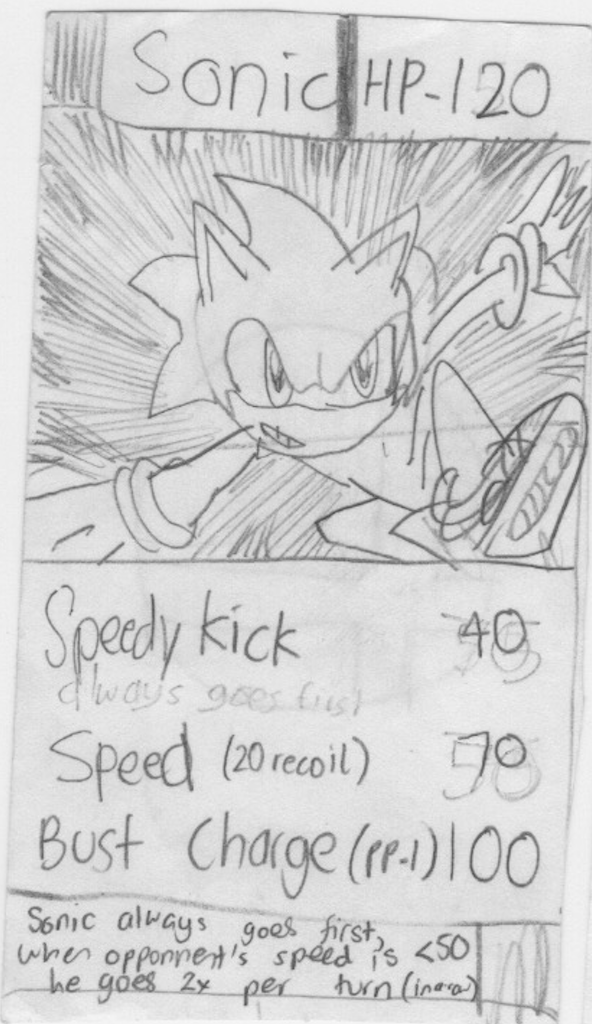 Sonic HP-120
Speedy kick 40
always goes first
Speed (20 recoil) 70
Bust Charge (PP-1) 100
Sonic always goes first,
when opponnent's speed is <50
he goes 2x per turn